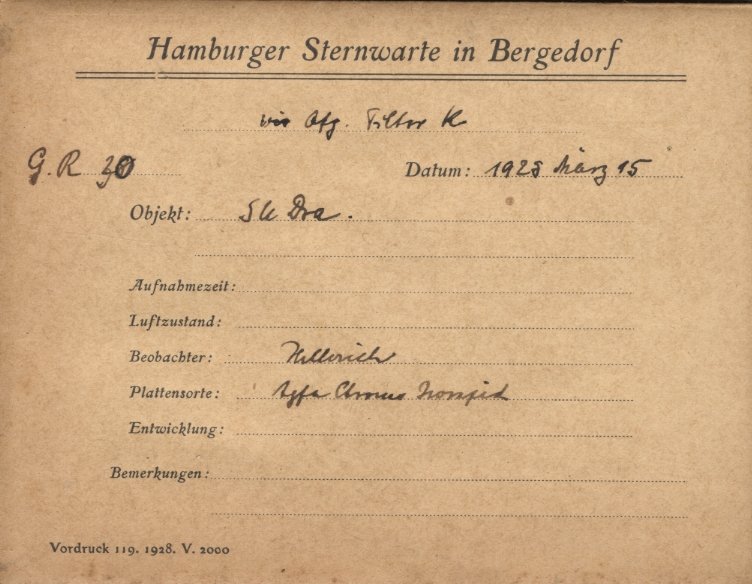 Hamburger Sternwarte in Bergedorf
vis Ofg. Filter K
G. R 30 Datum: 1928 März 15
Objekt: SU Dra.
Aufnahmezeit:
Luftzustand:
Beobachter: Hellerich
Plattensorte: Agfa Chromo Isorapid
Entwicklung:
Bemerkungen:
Vordruck 119. 1928. V. 2000